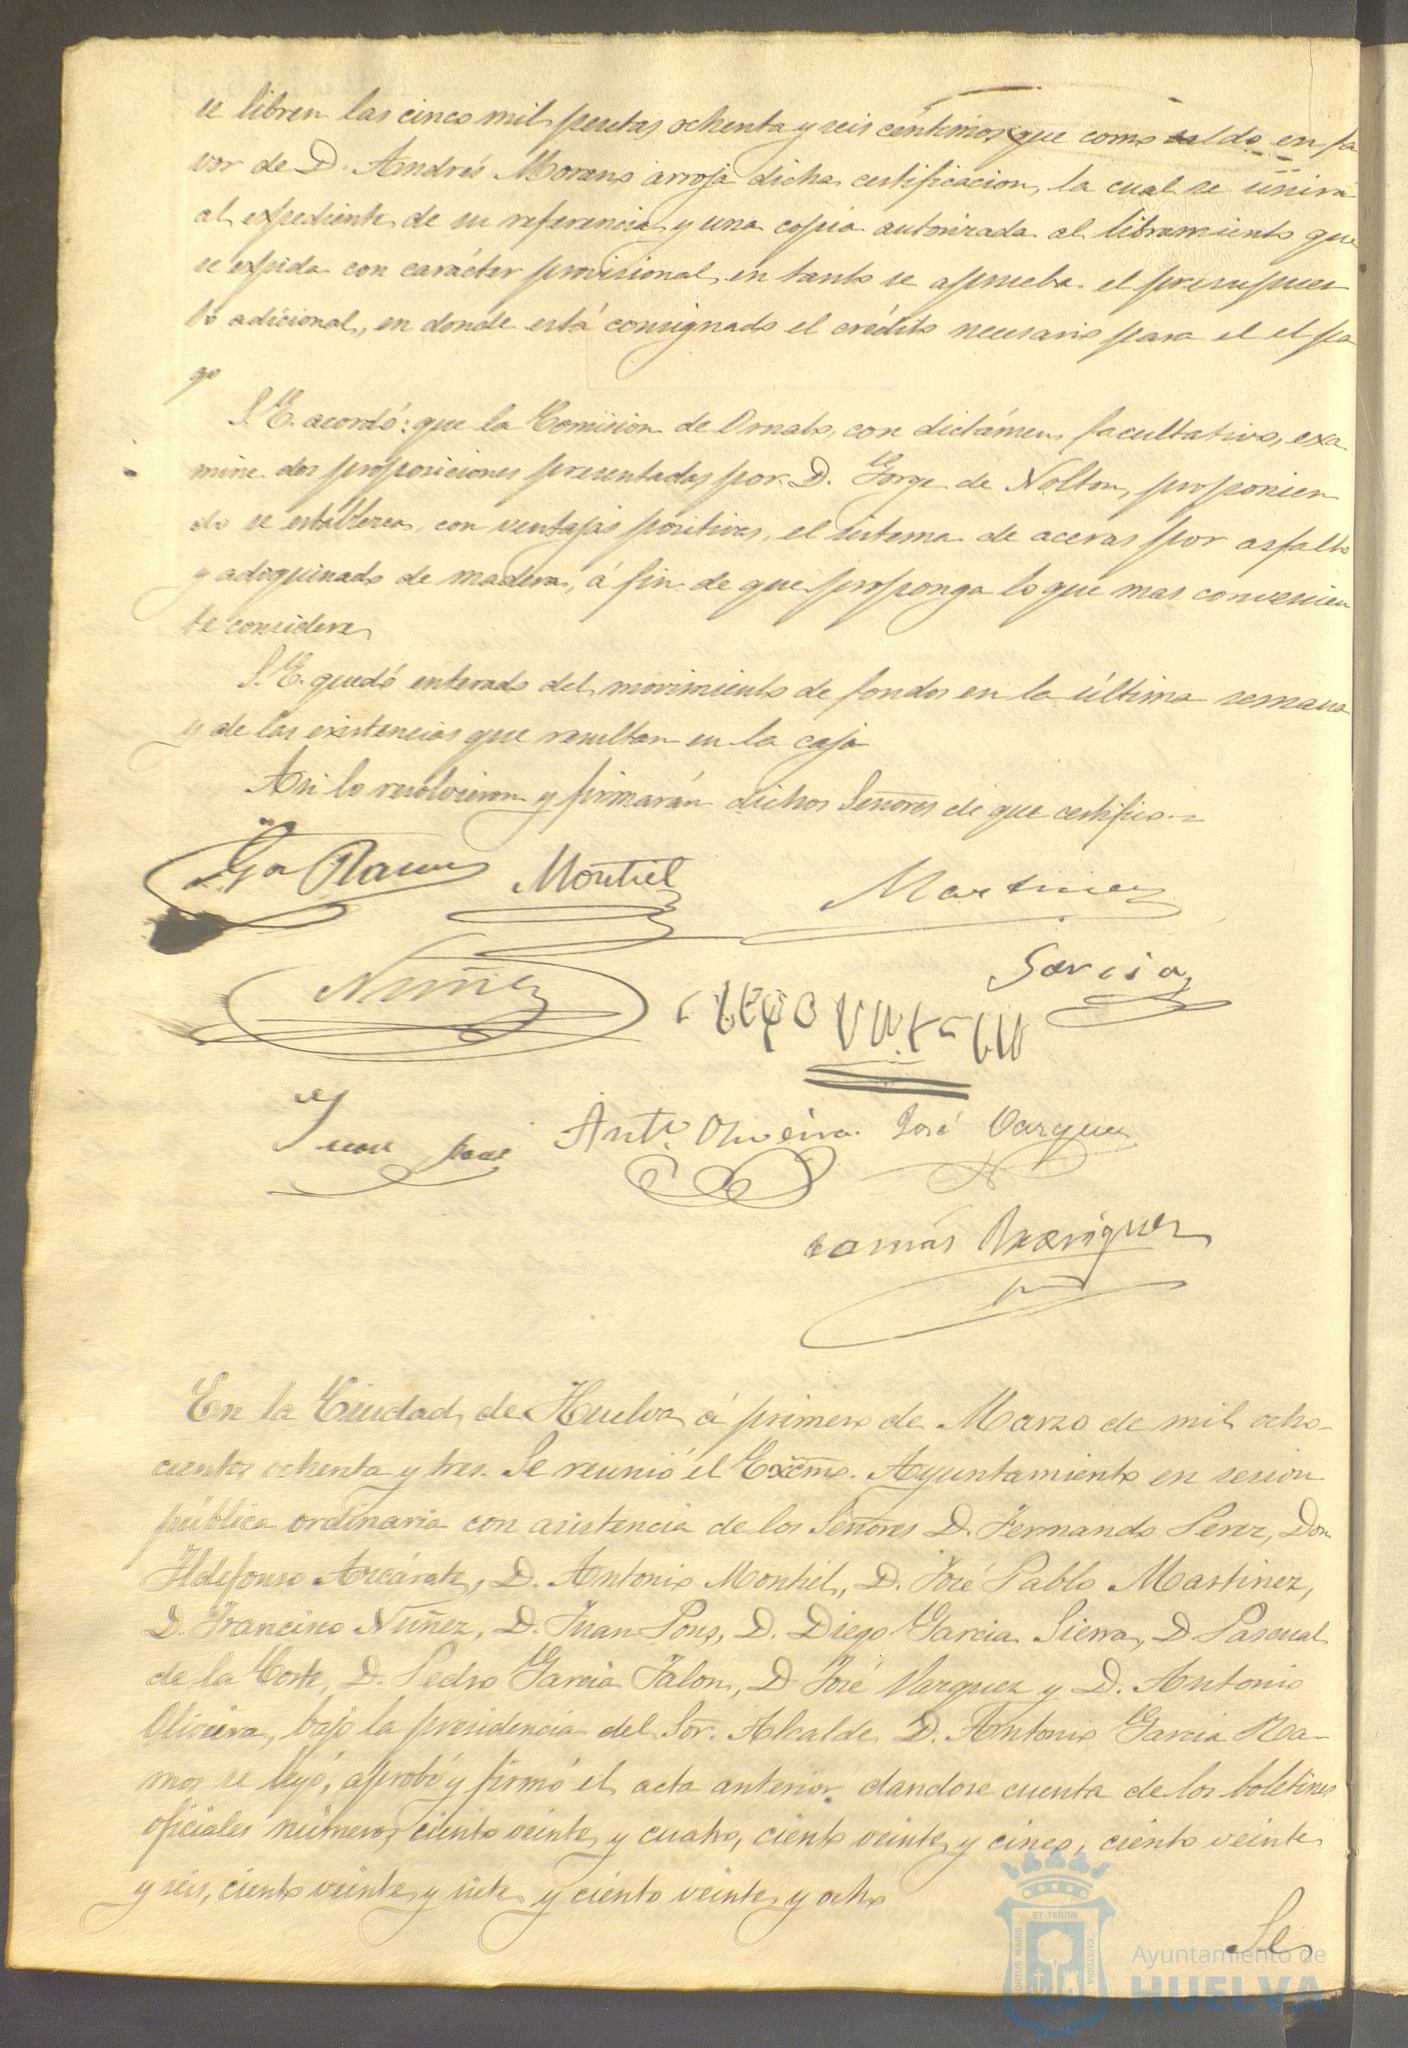 se libren las cinco mil pesetas ochenta y seis céntimos que como saldo en fa
vor de D. Andrés Moreno arroja dicha certificacion, la cual se unirá
al expediente de su referencia y una copia autorizada al libramiento que
se expida con carácter provisional, en tanto se aprueba el presupues
to adicional, en donde está consignado el crédito necesario para el el pa
go
S. E. acordó: que la Comision de Ornato, con dictámen facultativo, exa
mine dos proposiciones presentadas por D. Jorge de Nolton, proponien
do se establezca, con ventajas positivas, el sistema de aceras por asfalto
y adoquinado de madera, á fin de que proponga lo que mas convenien
te considere
S. E. quedó enterado del movimiento de fondos en la última semana
y de las existencias que resultan en la caja
Asi lo resolvieron y firmarán dichos Señores de que certifico.=
Ga Ramos Montiel Martinez
Nuñez Garcia
Juan Pons Anto. Oliveira José Vazquez
Tomás Rodriguez
En la Ciudad de Huelva á primero de Marzo de mil ocho-
cientos ochenta y tres. Se reunió el Excmo. Ayuntamiento en sesion
pública ordinaria con asistencia de los Señores D. Fernando Perez, Don
Ildefonso Azcárate, D. Antonio Montiel, D. José Pablo Martinez,
D. Francisco Nuñez, D. Juan Pons, D. Diego Garcia Sierra, D. Pascual
de la Corte, D. Pedro Garcia Jalon, D. José Vazquez y D. Antonio
Oliveira, bajo la presidencia del Sor. Alcalde D. Antonio Garcia Ra-
mos se leyó, aprobó y firmó el acta anterior, dandose cuenta de los boletines
oficiales números ciento veinte y cuatro, ciento veinte y cinco, ciento veinte
y seis, ciento veinte y siete y ciento veinte y ocho
Se
PORTUS MARIS ET TERRÆ CUSTODIA
Ayuntamiento de
HUELVA